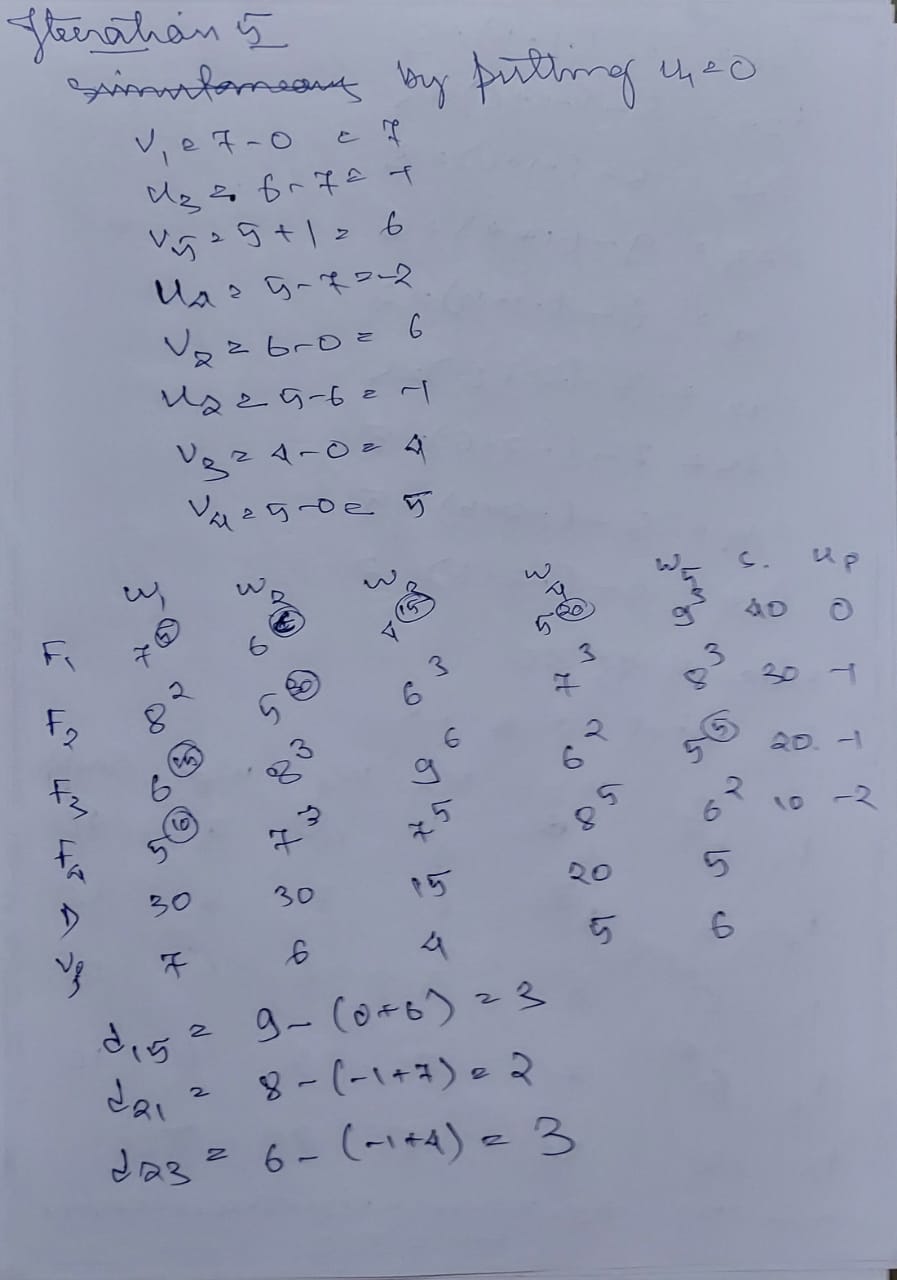 Iteration 5
by putting u₁=0
V₁ = 7-0 = 7
u₃ = 6-7 = -1
V₅ = 5+1 = 6
u₄ = 5-7 = -2
V₂ = 6-0 = 6
u₂ = 5-6 = -1
V₃ = 4-0 = 4
V₄ = 5-0 = 5
W₁ W₂ W₃ W₄ W₅ S.
F₁ 7 6 4 (15) 5 (20) 9 3 40 0
F₂ 8 2 5 (30) 6 3 7 3 8 3 30 -1
F₃ 6 (15) 8 3 9 6 6 2 5 (5) 20. -1
F₄ 5 7 3 7 5 8 5 6 2 10 -2
D 30 30 15 20 5
Vj 7 6 4 5 6
d₁₅ = 9-(0+6) = 3
d₂₁ = 8-(-1+7) = 2
d₂₃ = 6-(-1+4) = 3